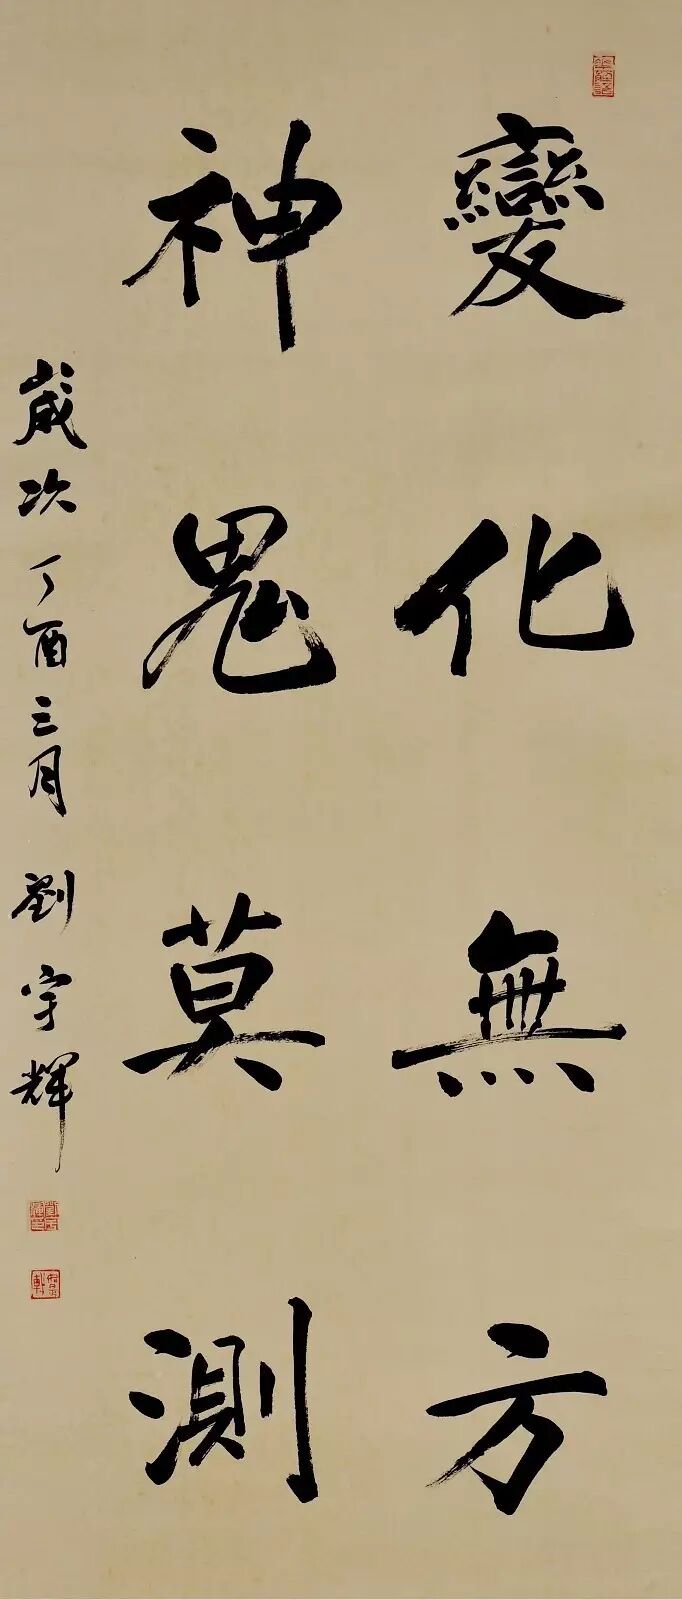 變化無方
神鬼莫測
歲次丁酉三月 劉宇輝